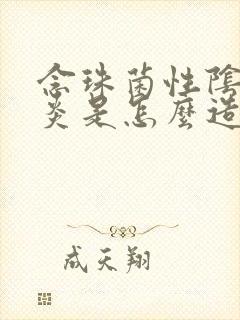 念珠菌性陰
炎是怎麼造
成天翔